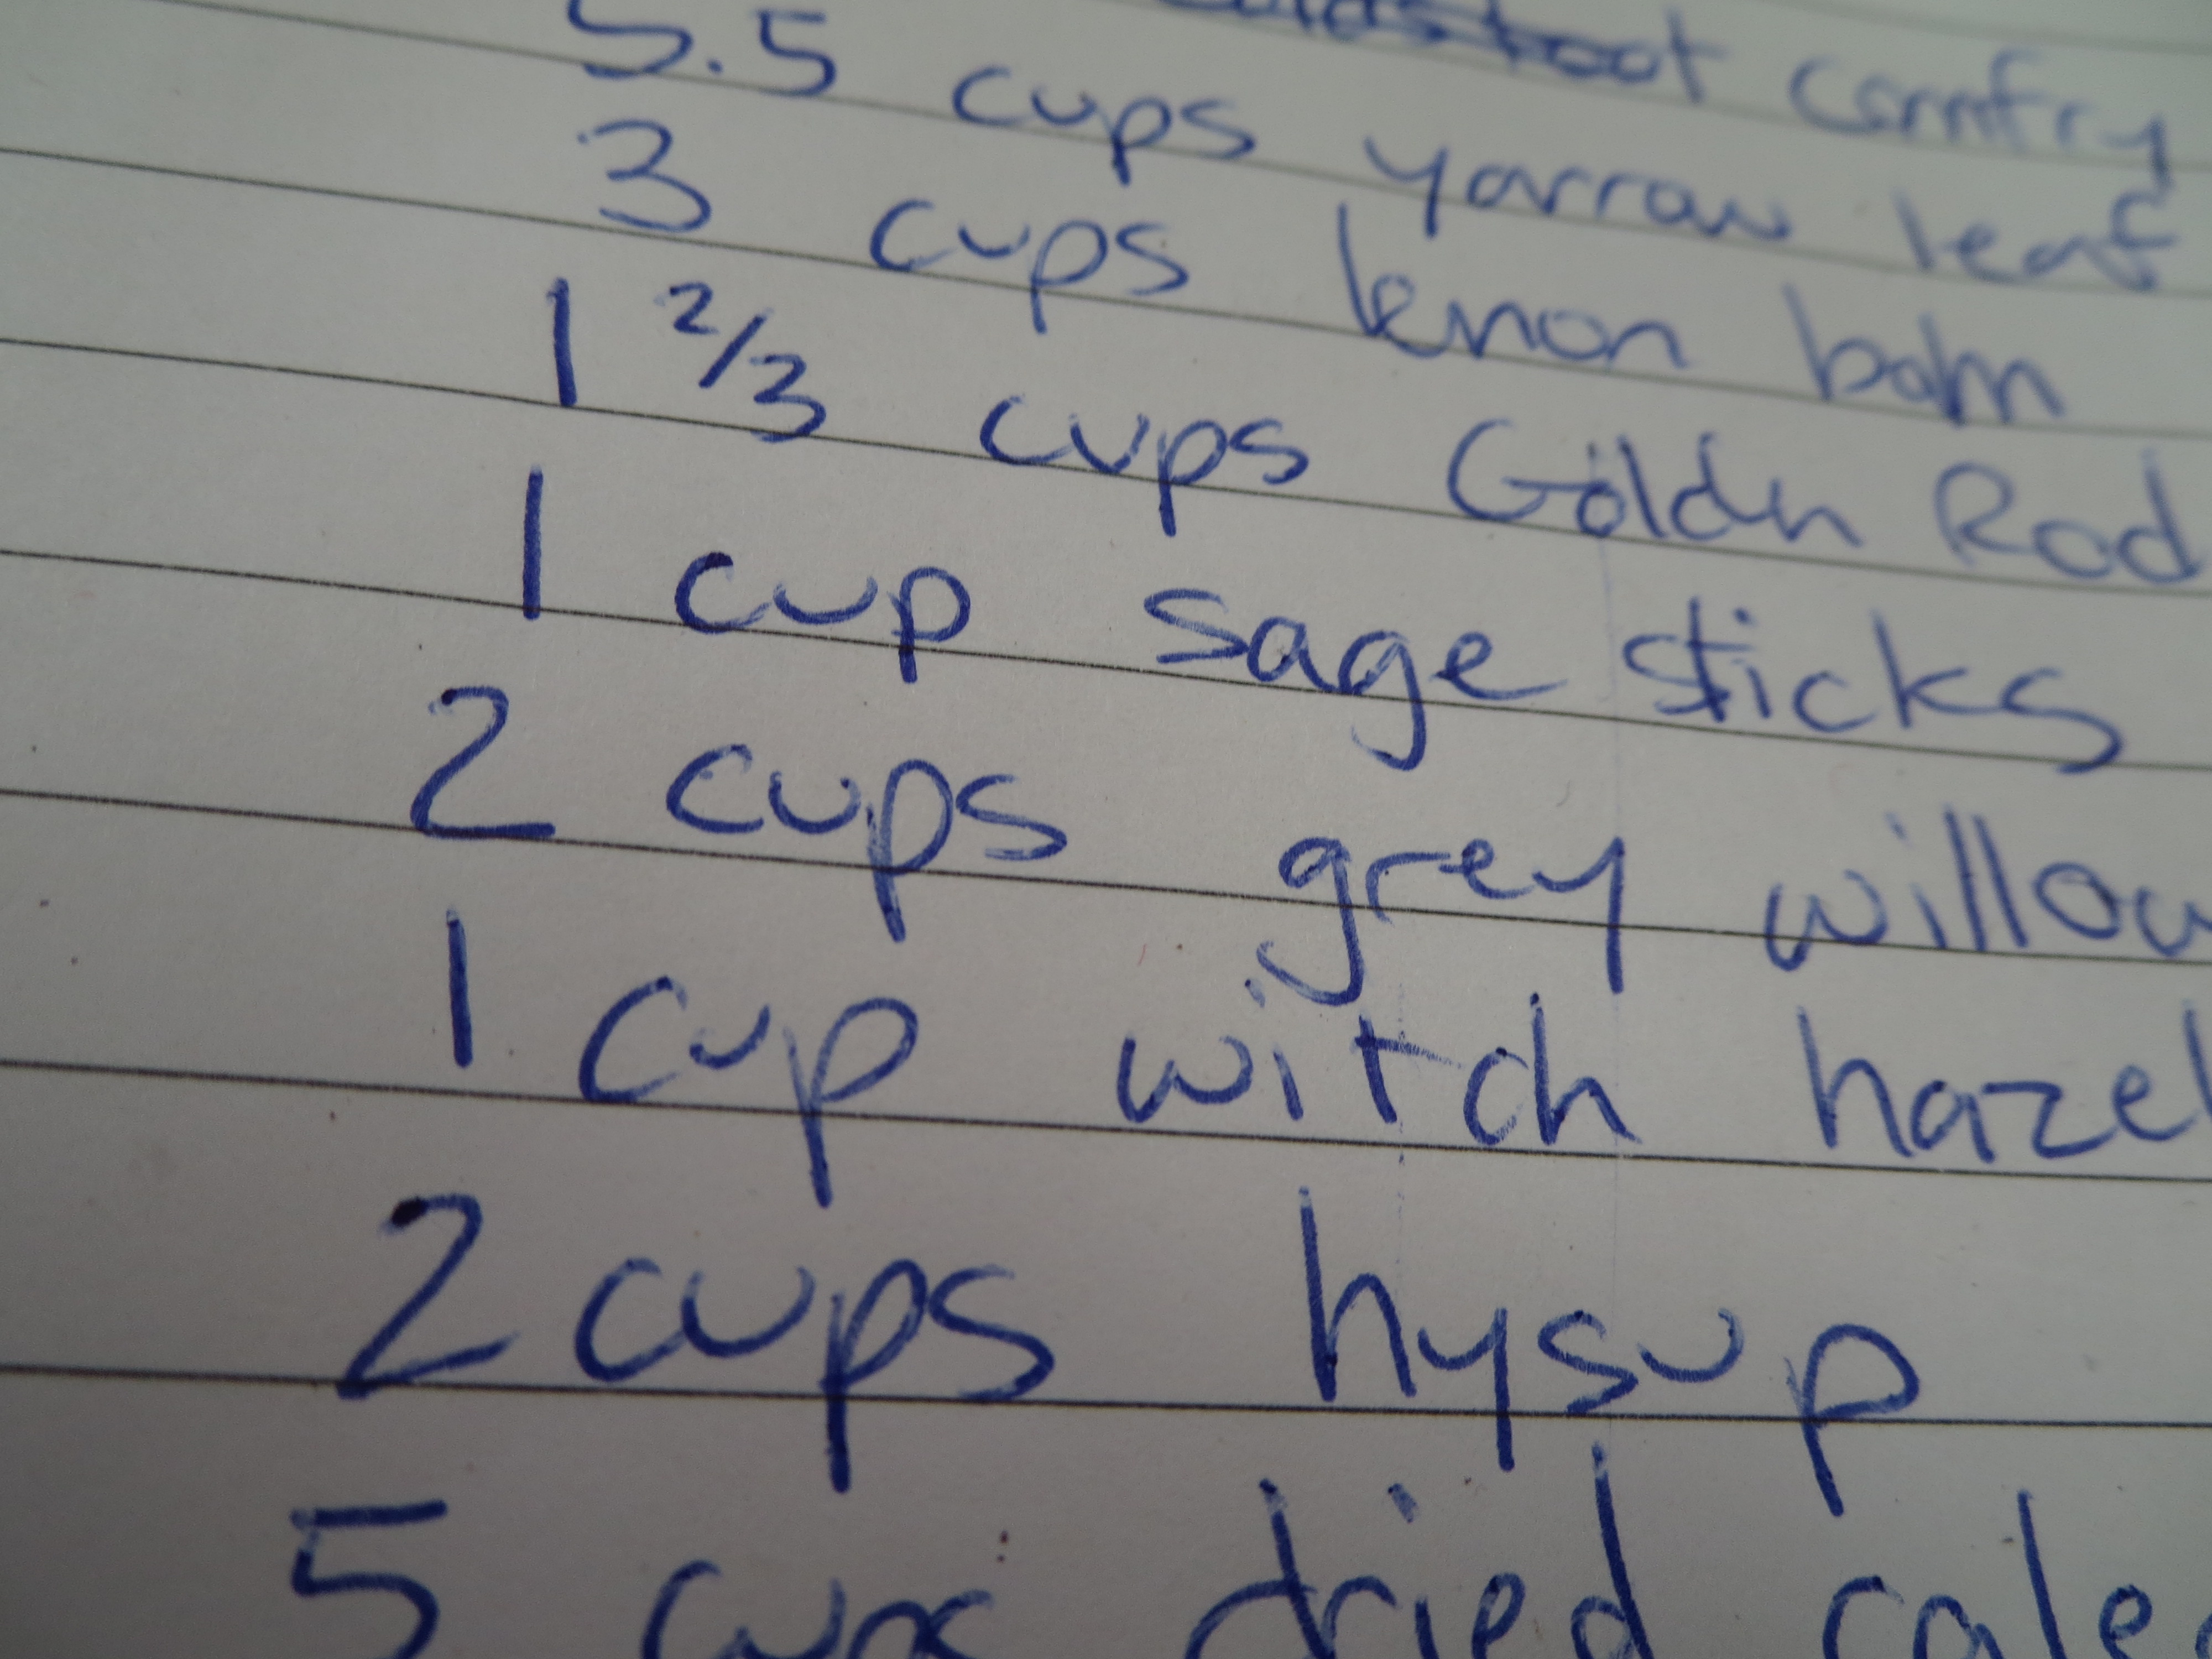 comfry
5.5 cups yarrow leaf
3 cups lemon balm
1 2/3 cups Goldn Rod
1 cup sage sticks
2 cups grey willow
1 cup witch hazel
2 cups hysup
5 cups dried